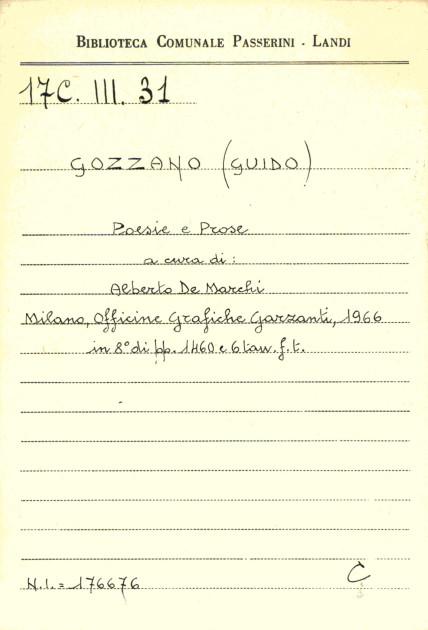 BIBLIOTECA COMUNALE PASSERINI - LANDI
17C. III. 31
GOZZANO (GUIDO)
Poesie e Prose
a cura di:
Alberto De Marchi
Milano, Officine Grafiche Garzanti, 1966
in 8° di pp. 1460 e 6 tav. f.t.
N.I. = 176676
C